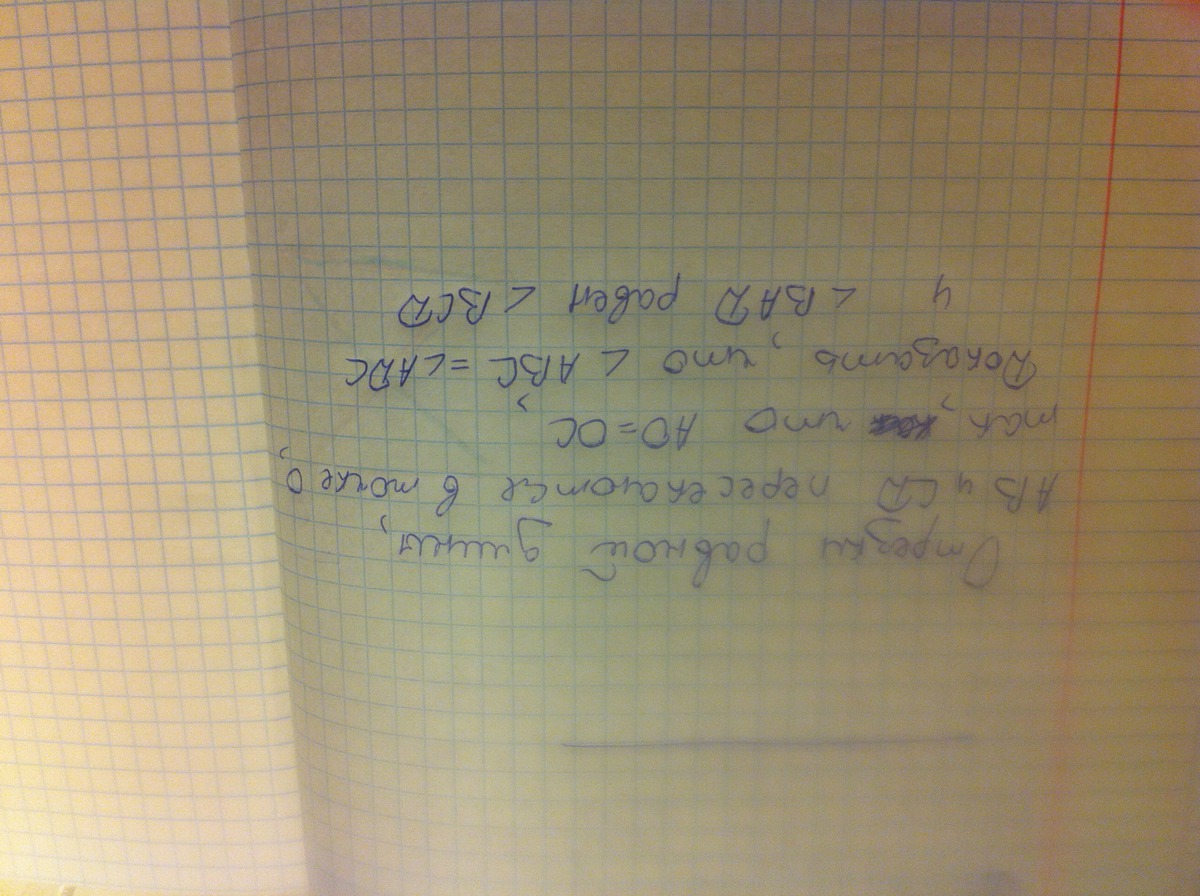 Отрезки равной длины,
АВ и CD пересекаются в точке О,
так, что АО=ОС,
Доказать, что ∠ABC = ∠ADC
и ∠BAD равен ∠BCD